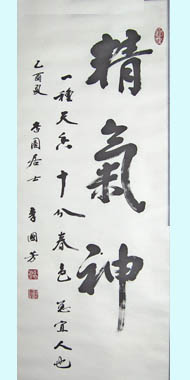 精氣神
一種天香十分春色宜人也
乙酉夏
園居士 國芳